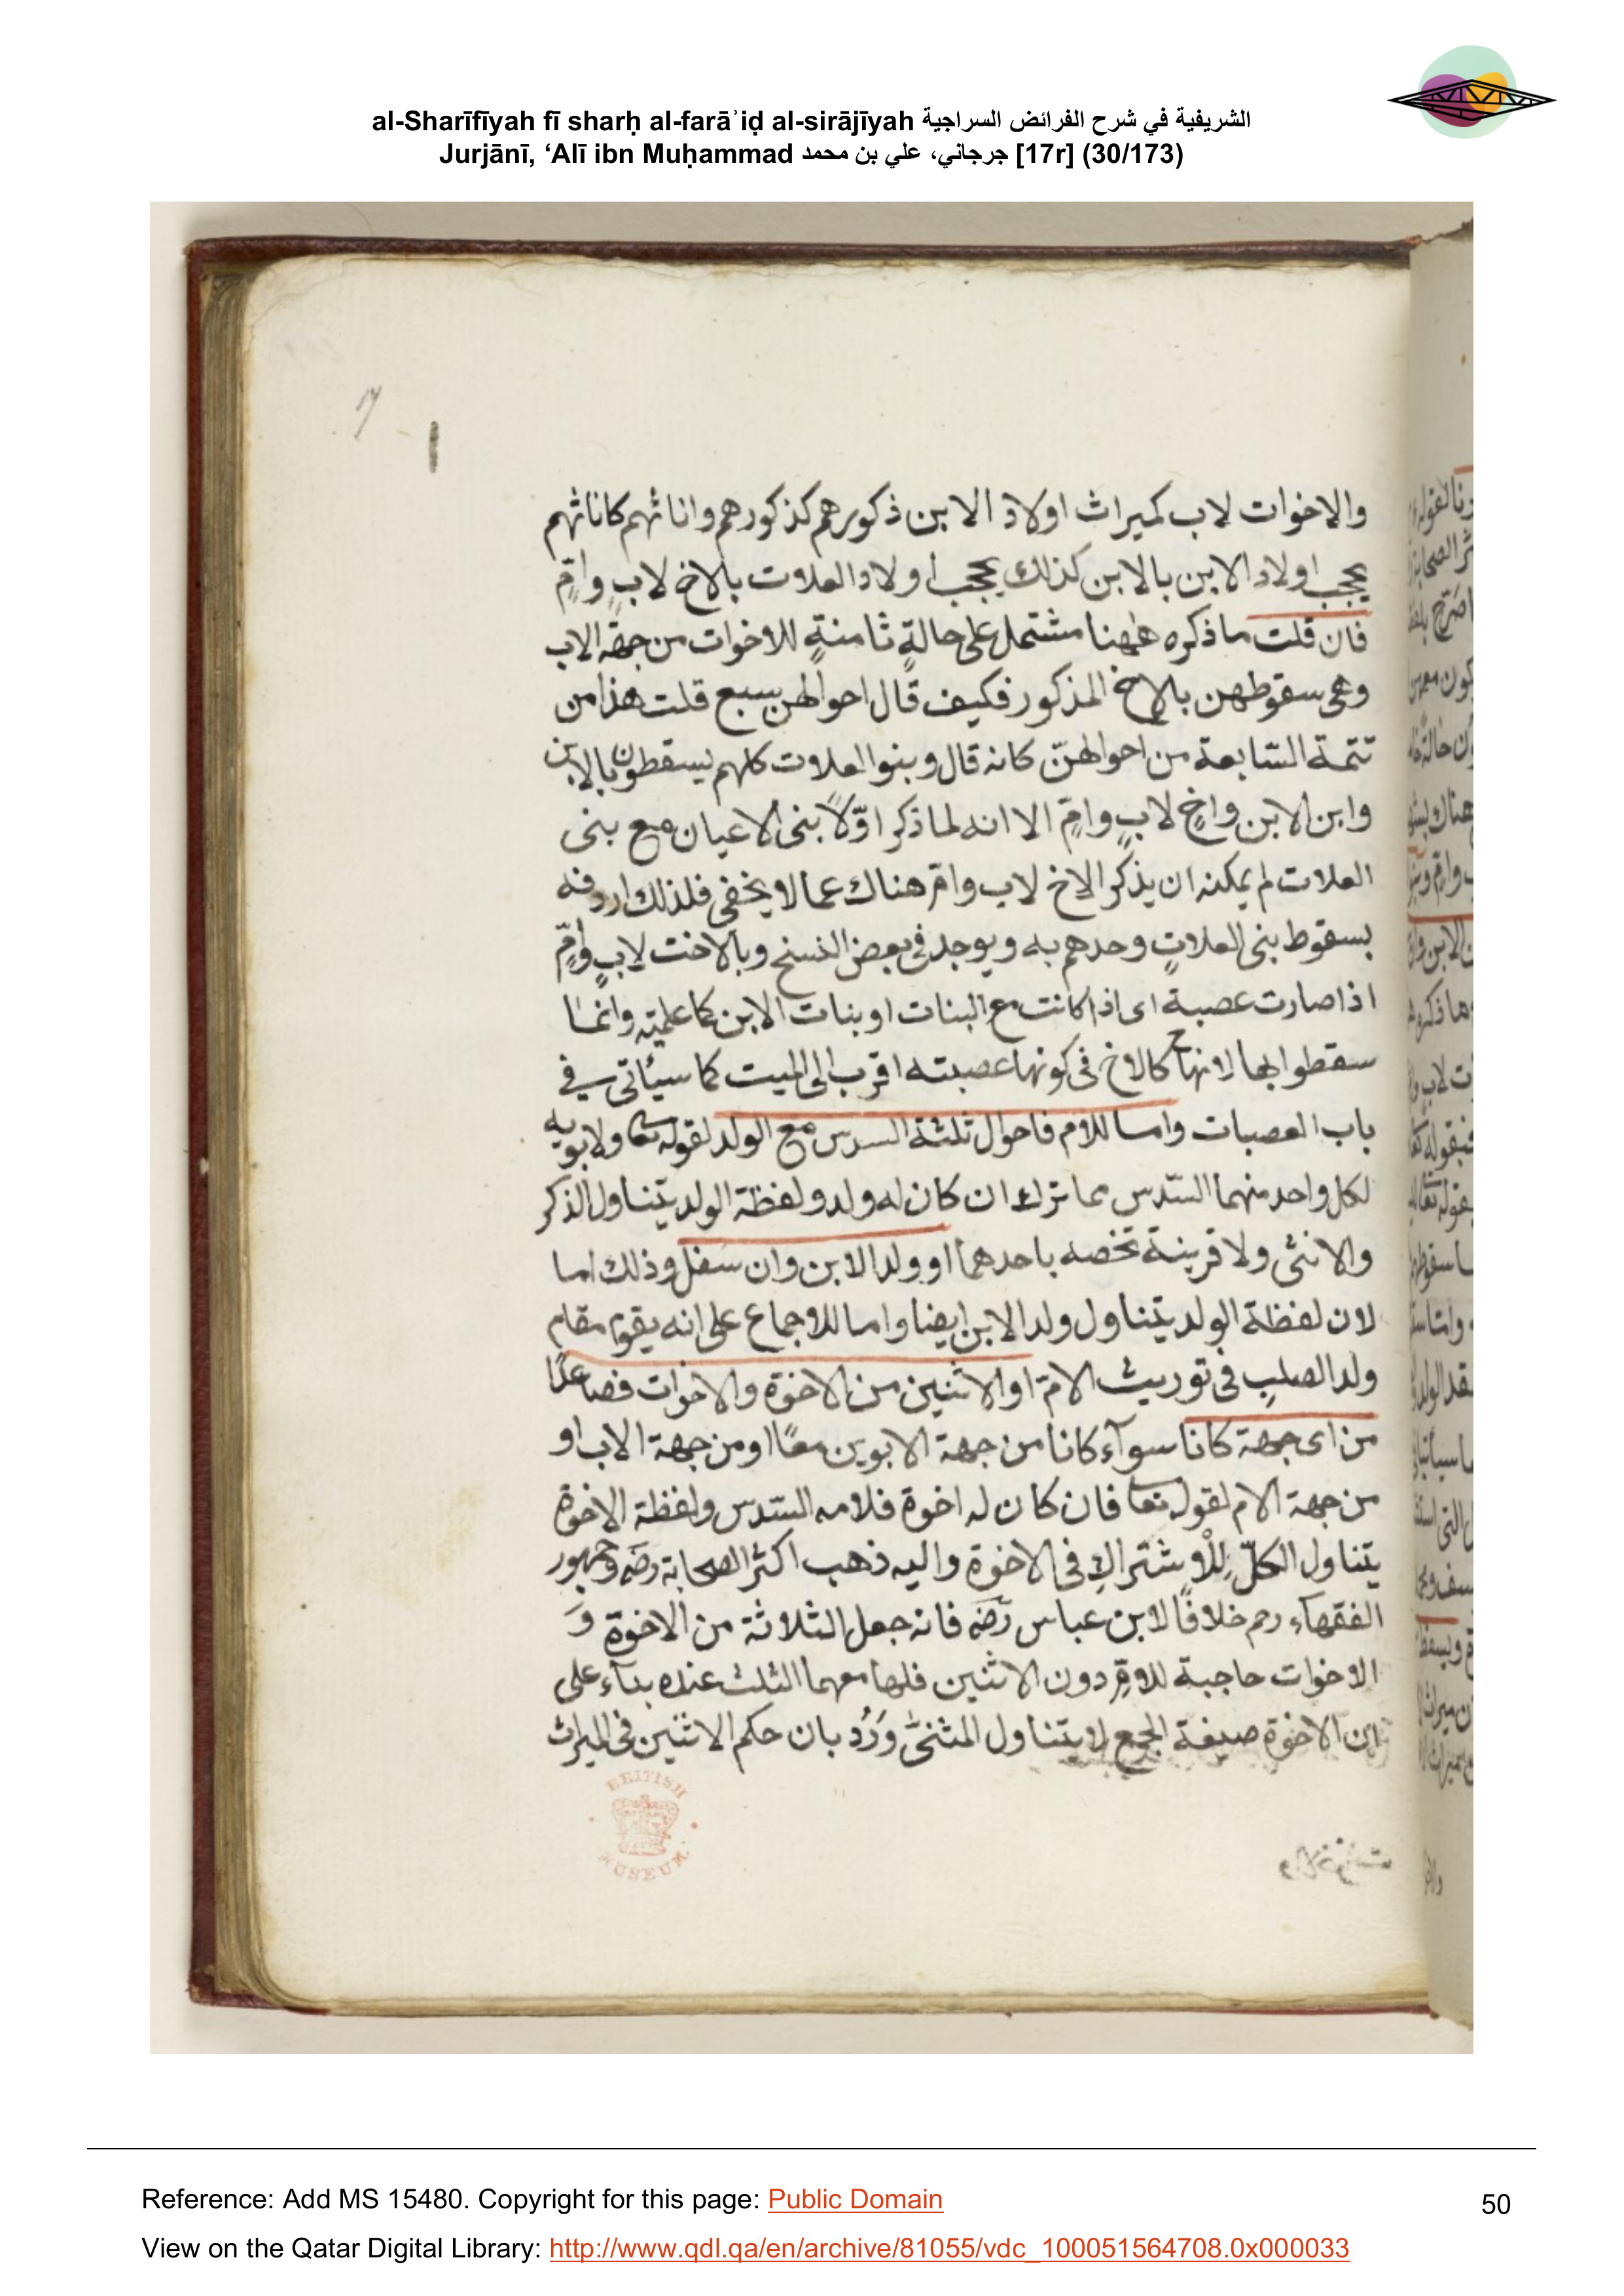 al-Sharīfīyah fī sharḥ al-farāʾiḍ al-sirājīyah الشريفية في شرح الفرائض السراجية
Jurjānī, ‘Alī ibn Muḥammad جرجاني، علي بن محمد [17r] (30/173)
17
والاخوات لاب كميراث اولاد الابن ذكورهم كذكورهم واناثهم كاناثهم
يحجب اولاد الابن بالابن كذلك يحجب اولاد العلات بالاخ لابٍ وامٍّ
فان قلت ما ذكره ههنا مشتمل على حالةٍ ثامنةٍ للاخوات من جهة الاب
وهى سقوطهن بالاخ المذكور فكيف قال احوالهن سبع قلت هذا من
تتمة السّابعة من احوالهنّ كانه قال وبنوا العلات كلهم يسقطون بالابن
وابن الابن واخٍ لابٍ وامٍّ الا انه لما ذكر اوّلاً بنى الاعيان مع بنى
العلات لم يمكنه ان يذكر الاخ لاب وام هناك عما لا يخفى فلذلك اردفه
بسقوط بنى العلاتٍ وحدهم به ويوجد فى بعض النسخ وبالاخت لابٍ وامٍّ
اذا صارت عصبة اى اذا كانت مع البنات او بنات الابن كما علمته وانما
سقطوا بها لانها ح كالاخ فى كونها عصبته اقرب الى الميت كما سيأتى فى
باب العصبات واما للام فاحوال ثلثة السدس مع الولد لقوله تعا ولابويه
لكل واحد منهما السّدس مما ترك ان كان له ولد ولفظة الولد يتناول الذكر
والانثى ولا قرينة تخصه باحدهما او ولد الابن وان سفل وذلك اما
لان لفظة الولد يتناول ولد الابن ايضا واما للاجماع على انه يقوم مقام
ولد الصلبِ فى توريث الامّ او الاثنين من الاخوة والاخوات فصاعدًا
من اى جهة كانا سوآء كانا من جهة الابوين معًا او من جهة الاب او
من جهة الام لقوله تعا فان كان له اخوة فلامه السّدس ولفظة الاخوة
يتناول الكلّ لِلْاِشتراكِ فى الاخوة واليه ذهب اكثر الصحابة رضه وجمهور
الفقهآء رحم خلافًا لابن عباس رضه فانه جعل الثلاثة من الاخوة وَ
الاخوات حاجبة للامّ دون الاثنين فلها معهما الثلث عنده بنآء على
ان الاخوة صيغة الجمع لا يتناول المثنىّ وَرُد بان حكم الاثنين فى الميراث
BRITISH MUSEUM
Reference: Add MS 15480. Copyright for this page: Public Domain
50
View on the Qatar Digital Library: http://www.qdl.qa/en/archive/81055/vdc_100051564708.0x000033